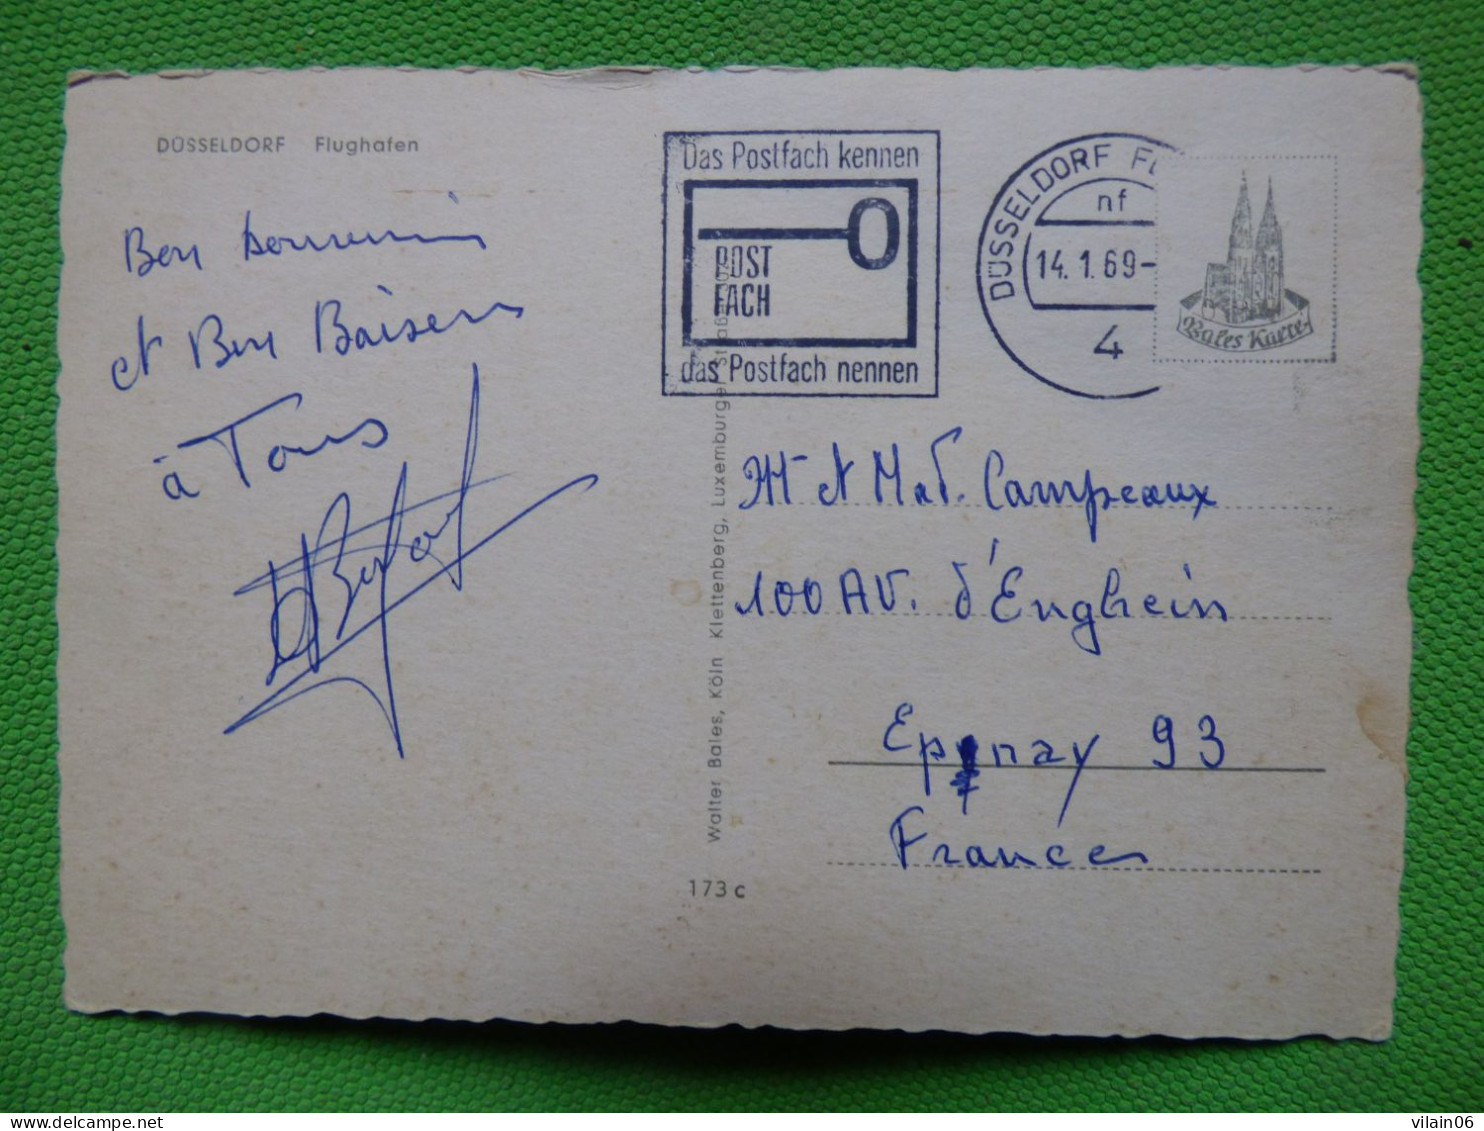 DÜSSELDORF Flughafen
Bon souvenir
et Bon Baisers
à Tous
Das Postfach kennen
POST
FACH
das Postfach nennen
DÜSSELDORF
nf
14.1.69-
4
Bales Karte
Mr et Mad. Campeaux
100 AV. d'Enghein
Epinay 93
France
Walter Bales, Köln Klettenberg, Luxemburger Straße
173 c
vilain06